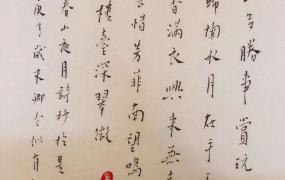 多勝事賞玩
歸掬水月在手
香滿衣興來無
惜芳菲南望鳴
樓臺深翠微
春山夜月詩於是
歲末卿